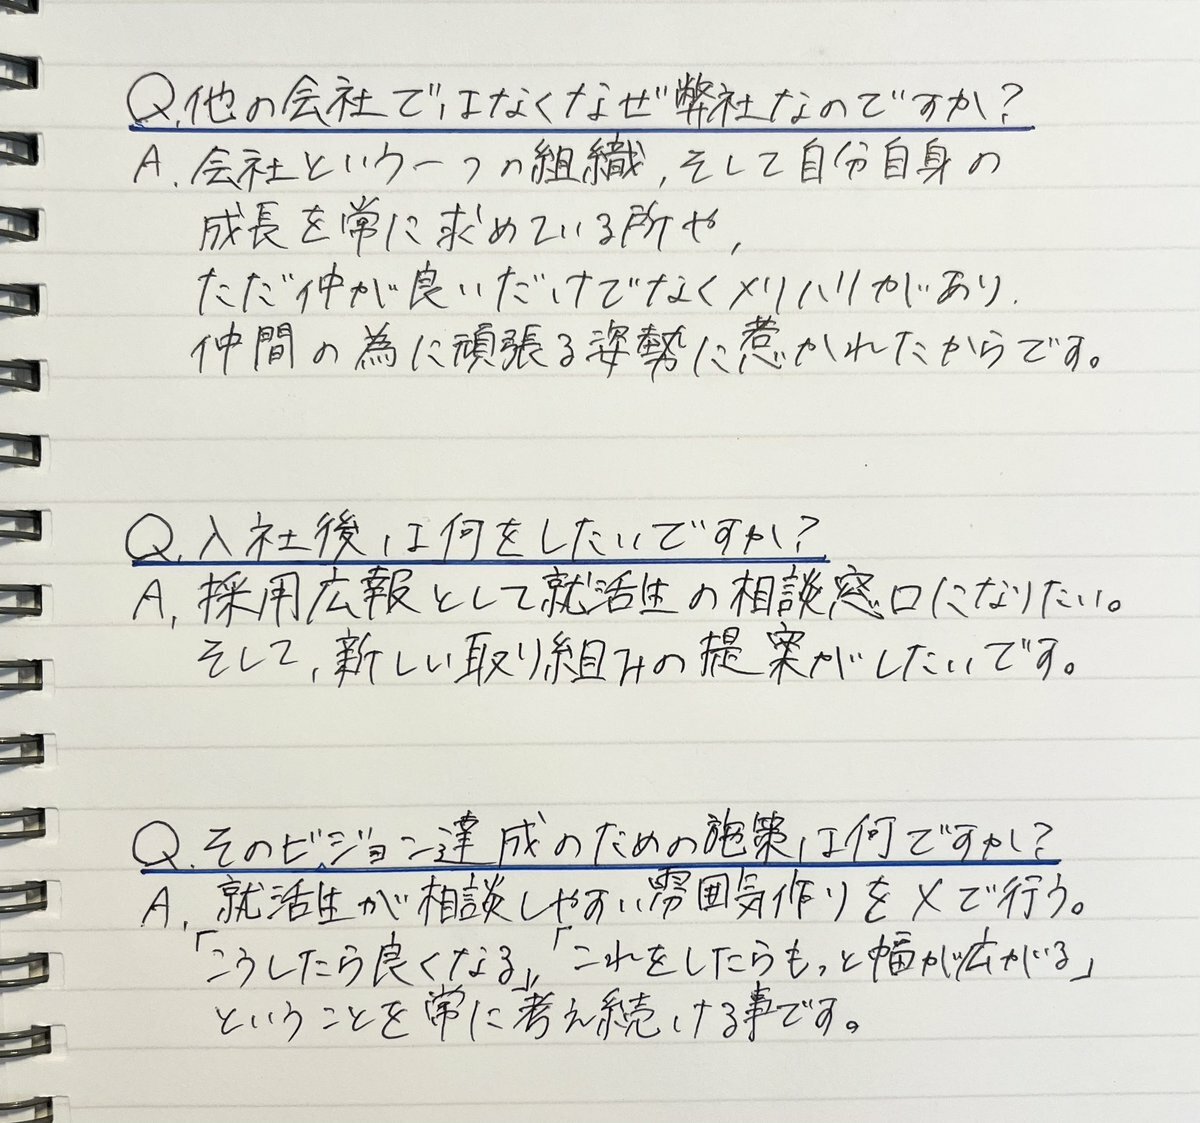 Q.他の会社ではなくなぜ弊社なのですか?
A.会社という一つの組織,そして自分自身の
成長を常に求めている所や,
ただ仲が良いだけでなくメリハリがあり,
仲間の為に頑張る姿勢に惹かれたからです。
Q.入社後は何をしたいですか?
A.採用広報として就活生の相談窓口になりたい。
そして,新しい取り組みの提案がしたいです。
Q.そのビジョン達成のための施策は何ですか?
A.就活生が相談しやすい雰囲気作りをXで行う。
「こうしたら良くなる」,「これをしたらもっと幅が広がる」
ということを常に考え続ける事です。